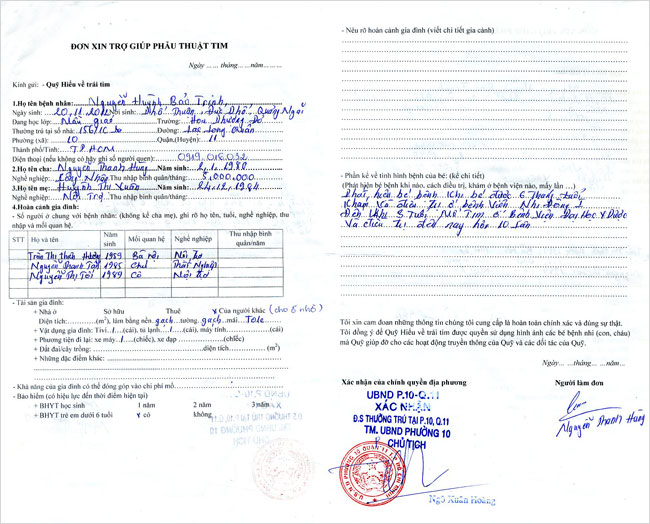 ĐƠN XIN TRỢ GIÚP PHẪU THUẬT TIM
Ngày ...... tháng......năm.........
Kính gửi: - Quỹ Hiểu về trái tim
1.Họ tên bệnh nhân: Nguyễn Huỳnh Bảo Trinh,
Ngày sinh: 20.11.2012 Nơi sinh: Phổ Thuận, Đức Phổ, Quảng Ngãi
Đang học lớp: Mẫu giáo Trường: Hoa Phượng Đỏ
Thường trú tại số nhà: 156/1C Đường: Lạc Long Quân
Phường (xã): 10 Quận,(Huyện): 11
Thành phố/Tỉnh: TP HCM
Điện thoại (nếu không có hãy ghi số người quen): 0919.016.032
2.Họ tên cha: Nguyễn Thanh Hùng Năm sinh: 2.1.1980
Nghề nghiệp: Công Nhân Thu nhập bình quân/tháng: 5.000.000
3.Họ tên mẹ: Huỳnh Thị Xuân Năm sinh: 24.12.1984
Nghề nghiệp: Nội Trợ Thu nhập bình quân/tháng:
4.Hoàn cảnh gia đình:
- Số người ở chung với bệnh nhân: (không kể cha mẹ), ghi rõ họ tên, tuổi, nghề nghiệp, thu
nhập và mối quan hệ.
STT Họ và tên Năm sinh Mối quan hệ Nghề nghiệp Thu nhập bình quân/năm
Trần Thị Thiên 1959 Bà nội Nội Trợ
Nguyễn Thanh 1985 Chú Thất Nghiệp
Nguyễn Thị 1989 Cô Nội trợ
- Tài sản gia đình:
+ Nhà ở Sở hữu Thuê v Của người khác (cho ở nhờ)
Diện tích:.........(m2), làm bằng nền gạch tường gạch mái Tole
+ Vật dụng gia đình: Tivi 1 (cái), tủ lạnh 1 (cái), máy tính.........(cái)
+ Phương tiện đi lại: xe máy 1 (chiếc), xe đạp .........(chiếc)
+ Đất đai/cây trồng:.........diện tích.........(m2)
+ Những đặc điểm khác:.........
- Khả năng của gia đình có thể đóng góp vào chi phí mổ.........
- Bảo hiểm (có hiệu lực đến thời điểm hiện tại)
+ BHYT học sinh 1 năm 2 năm 3 năm
+ BHYT trẻ em dưới 6 tuổi v có không
- Nêu rõ hoàn cảnh gia đình (viết chi tiết gia cảnh)
- Phần kể về tình hình bệnh của bé: (kể chi tiết)
(Phát hiện bé bệnh khi nào, cách điều trị, khám ở bệnh viện nào, mấy lần ...)
Phát hiện bé bệnh khi bé được 6 Tháng Tuổi
Khám Và điều Trị ở bệnh Viện Nhi Đồng 1
Đến Khi 3 Tuổi, Mổ Tim ở Bệnh Viện Đại Học Y Dược
Và điều Trị đến nay hơn 10 lần
Tôi xin cam đoan những thông tin chúng tôi cung cấp là hoàn toàn chính xác và đúng sự thật.
Tôi đồng ý để Quỹ Hiểu về trái tim được quyền sử dụng hình ảnh các bé bệnh nhi (con, cháu)
mà Quỹ giúp đỡ cho các hoạt động truyền thông của Quỹ và các đối tác của Quỹ.
Ngày...... tháng......năm......
Xác nhận của chính quyền địa phương
Người làm đơn
UBND P.10-Q.11
XÁC NHẬN
Đ.S THƯỜNG TRÚ TẠI P.10, Q.11
TM. UBND PHƯỜNG 10
CHỦ TỊCH
Nguyễn Thanh Hùng
Ngô Xuân Hoàng